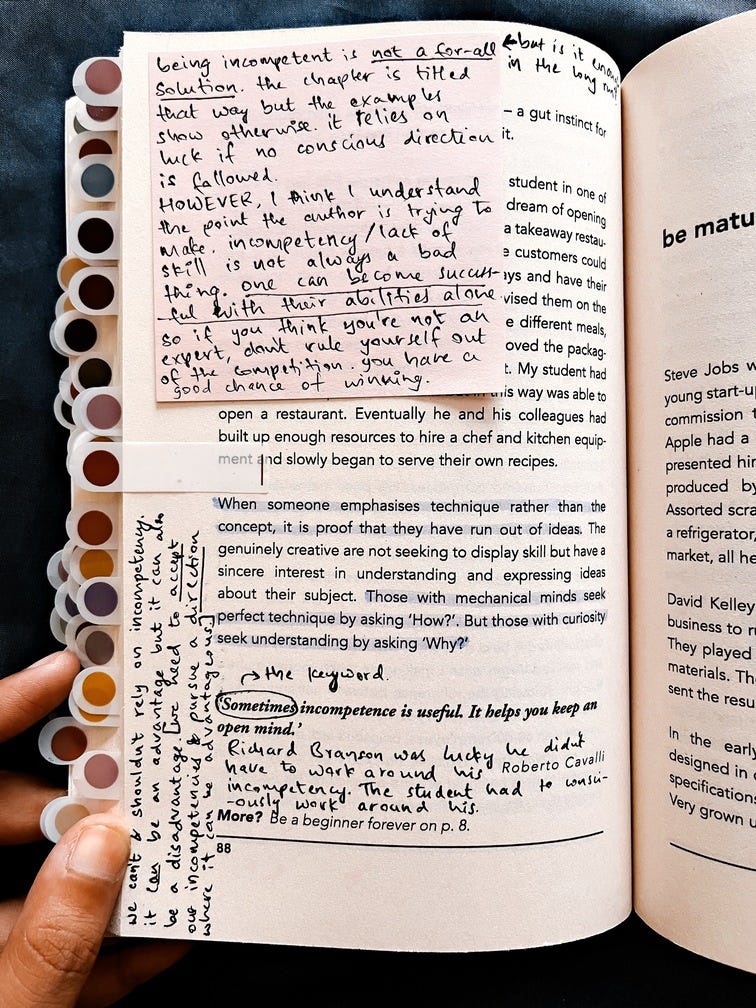 being incompetent is not a for-all
solution. the chapter is titled
that way but the examples
show otherwise. it relies on
luck if no conscious direction
is followed.
HOWEVER, I think I understand
the point the author is trying to
make. incompetency/lack of
skill is not always a bad
thing. one can become success-
-ful with their abilities alone.
so if you think you're not an
expert, don't rule yourself out
of the competition. you have a
good chance of winning.
←but is it
in the long run?
– a gut instinct for
it.
student in one of
dream of opening
a takeaway restau-
customers could
ys and have their
vised them on the
e different meals,
oved the packag-
t. My student had
this way was able to
open a restaurant. Eventually he and his colleagues had
built up enough resources to hire a chef and kitchen equip-
ment and slowly began to serve their own recipes.
When someone emphasises technique rather than the
concept, it is proof that they have run out of ideas. The
genuinely creative are not seeking to display skill but have a
sincere interest in understanding and expressing ideas
about their subject. Those with mechanical minds seek
perfect technique by asking 'How?'. But those with curiosity
seek understanding by asking 'Why?'
→the keyword.
'Sometimes incompetence is useful. It helps you keep an
open mind.'
Roberto Cavalli
Richard Branson was lucky he didn't
have to work around his
incompetency. The student had to consci-
-ously work around his.
More? Be a beginner forever on p. 8.
88
we can't & shouldn't rely on incompetency.
it can be an advantage but it can also
be a disadvantage. [we need to accept
our incompetencies & pursue a direction
where it can be advantageous.]
be matu
Steve Jobs w
young start-u
commission t
Apple had a
presented hir
produced by
Assorted scra
a refrigerator,
market, all he
David Kelley
business to r
They played
materials. Th
sent the resu
In the early
designed in
specifications
Very grown u